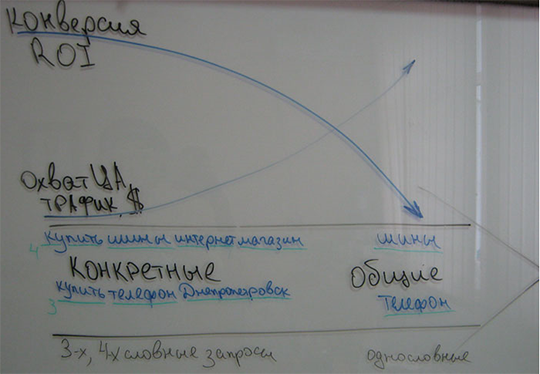 Конверсия
ROI
Охват ЦА,
трафик, $
4 купить шины интернет магазин шины
Конкретные Общие
3 купить телефон Днепропетровск телефон
3-х, 4х словные запросы однословные